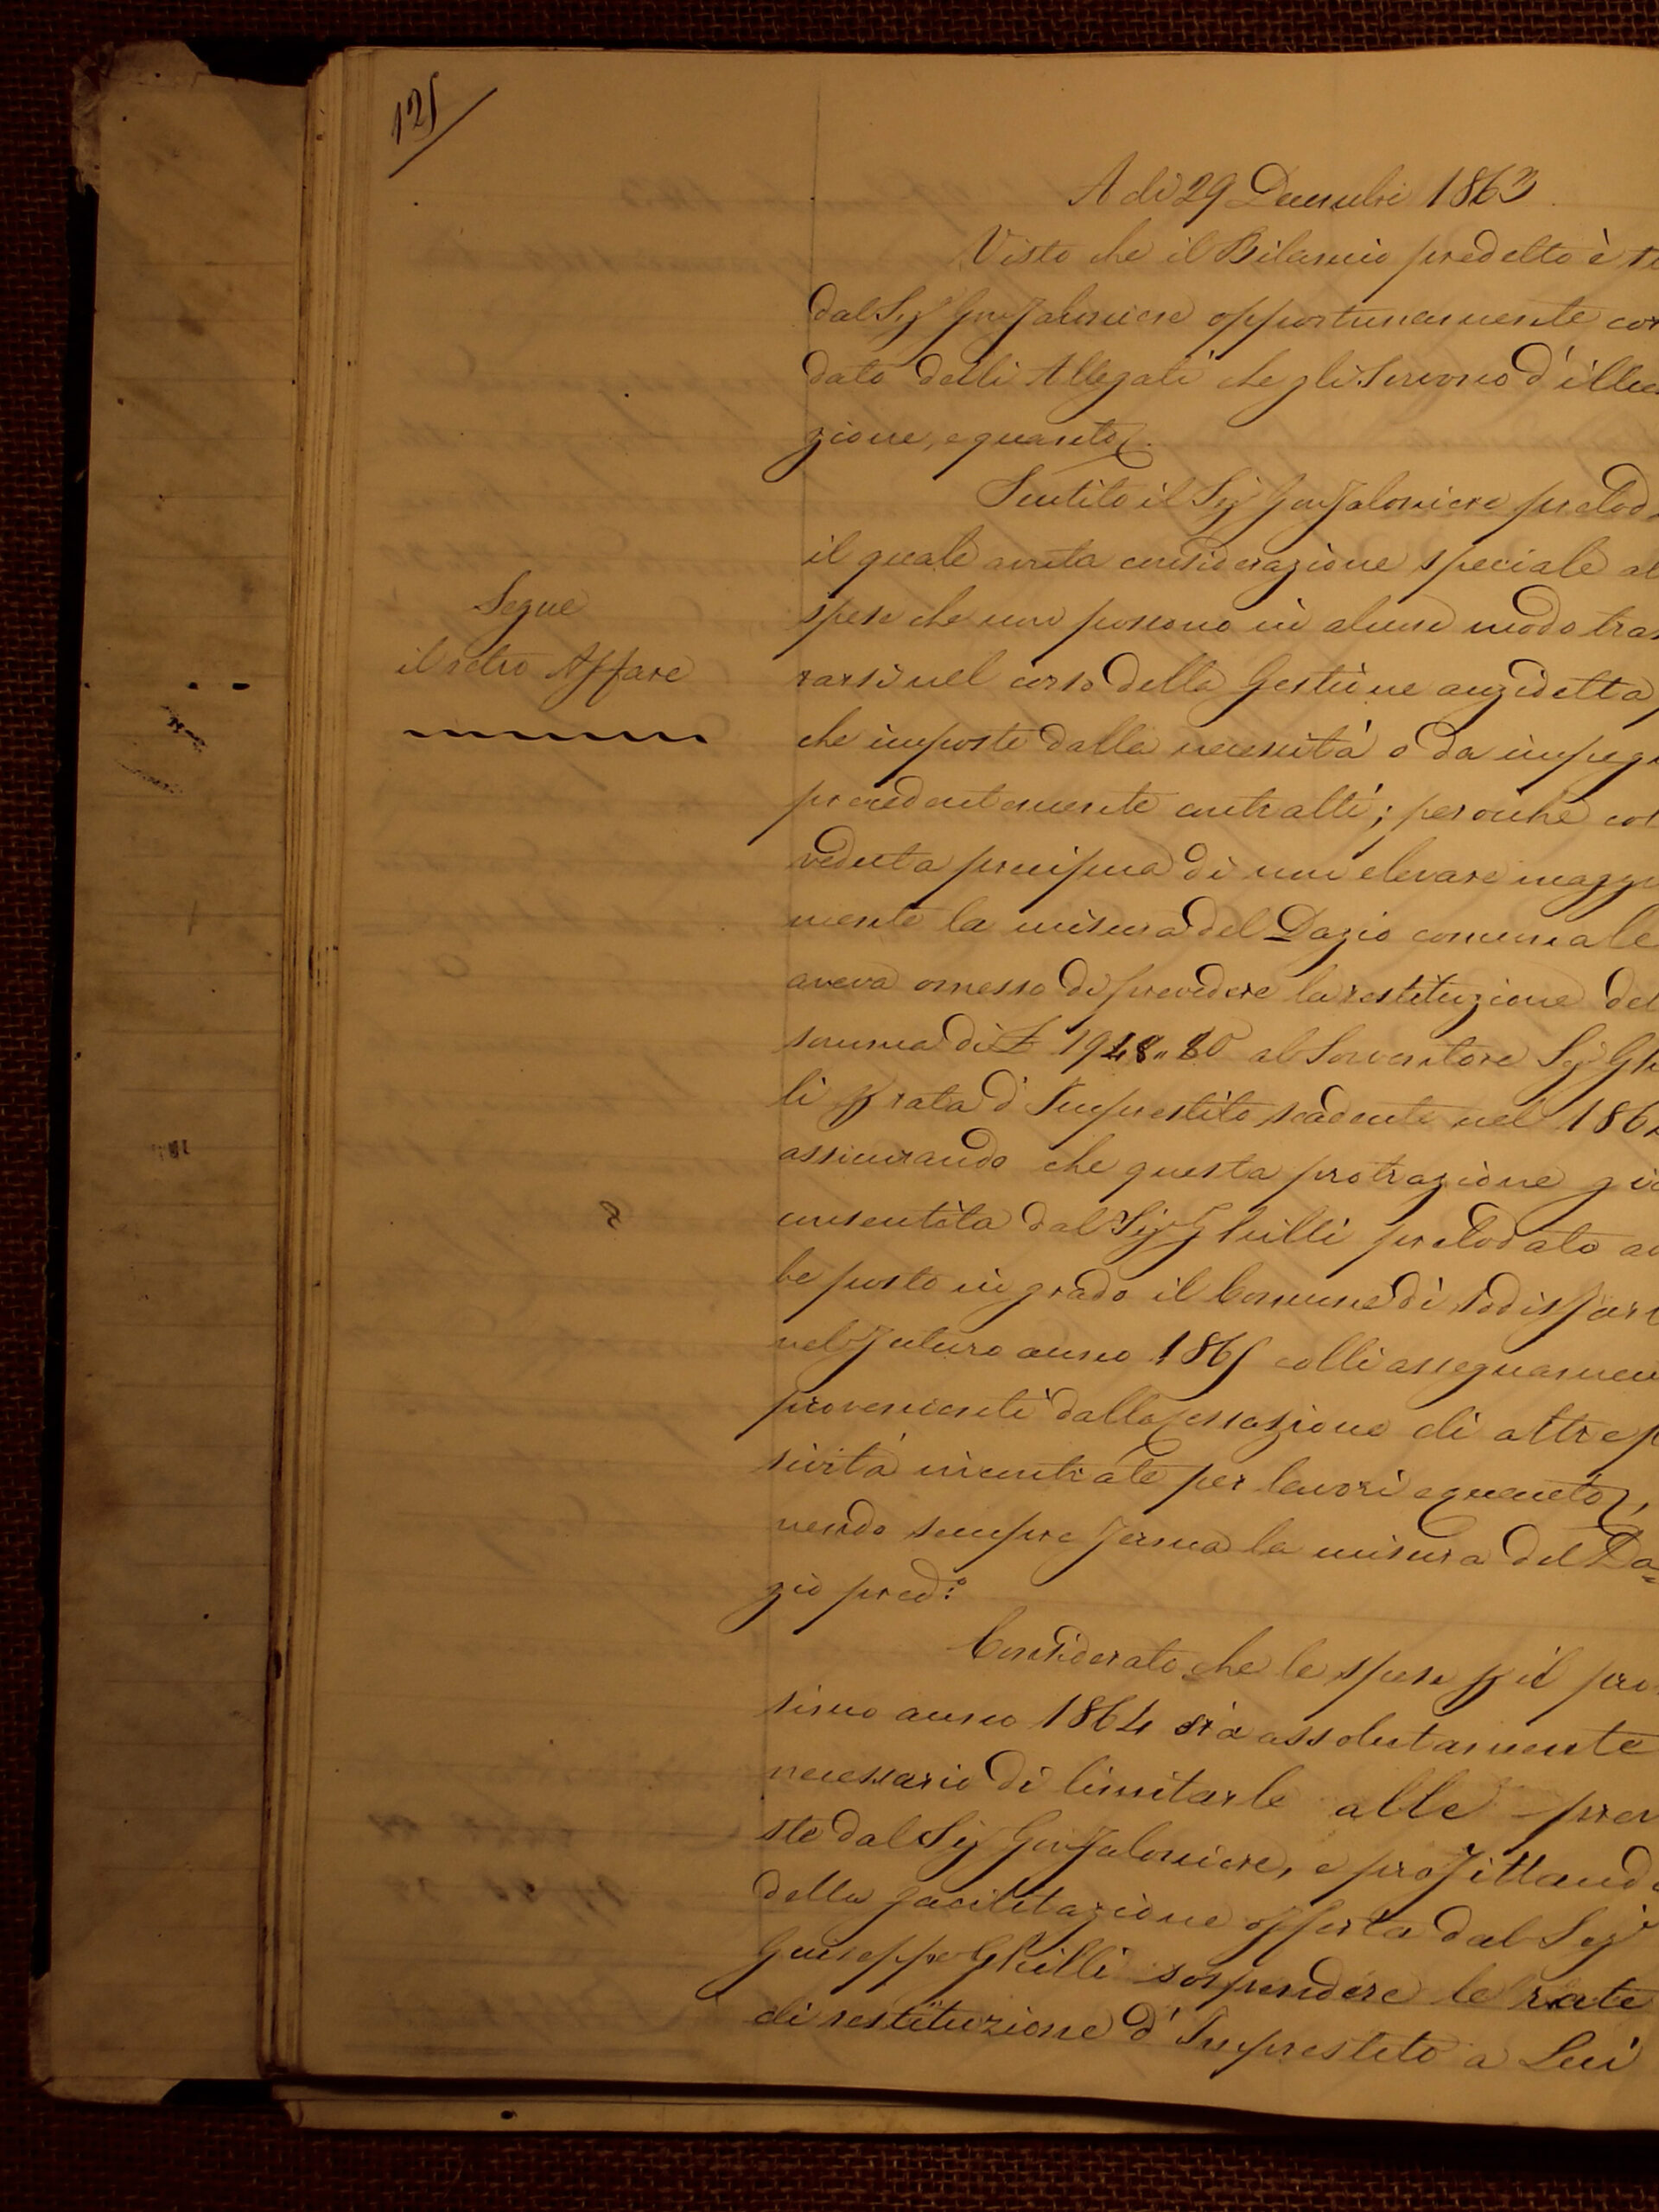 125
A dì 29 Decembre 1863
Visto che il Bilancio predetto è st
dal Sig Gonfaloniere opportunamente cor
dato delli Allegati che gli Servono d'illu
zione, e quanto
Sentito il Sig Gonfaloniere prelod
il quale avuta considerazione speciale al
Segue
spese che non possono in alcun modo tras
il retro Affare
rarsi nel corso della Gestione anzidetta
che imposte dalla necessità o da impeg
precedentemente contratti; perocchè col
veduta precipua di non elevare maggi
mente la misura del Dazio comunale
aveva omesso di prevedere la restituzione del
somma di £ 1948.. 80 al Sovventore Sig Gh
li p rata d'Imprestito scadente nel 186
assicurando che questa protrazione già
consentita dal Sig Ghilli prelodato av
be posto in grado il Comune di sodisfare
nel futuro anno 1865 colli assegnamen
provenienti dalla cessazione di altre p
sività incontrate per lavori e quanto,
nendo sempre ferma la misura del Da=
zio pred:°
Considerato che le spese p il pro
simo anno 1864 sia assolutamente
necessario di limitarle alle prev
ste dal Sig Gonfaloniere, e profittando
della facilitazione offerta dal Sig
Giuseppe Ghilli sospendere le rate
di restituzione d'Imprestito a Lui